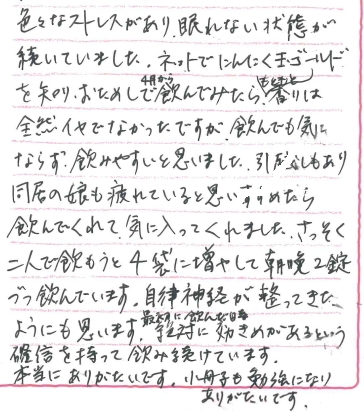 色々なストレスがあり、眠れない状態が
続いていました。ネットでにんにく玉ゴールド
を知り、おためしで4月から飲んでみたら、もともと香りは
全然イヤでなかったですが、飲んでも気に
ならず、飲みやすいと思いました。引
同居の娘も疲れていると思いすすめたら
飲んでくれて、気に入ってくれました。さっそく
二人で飲もうと4袋に増やして朝晩2錠
づつ飲んでいます。自律神経が整ってきた
ようにも思います。最初に飲んだ日、絶対に効きめがあるという
確信を持って飲み続けています。
本当にありがたいです。小冊子も勉強になり
ありがたいです。